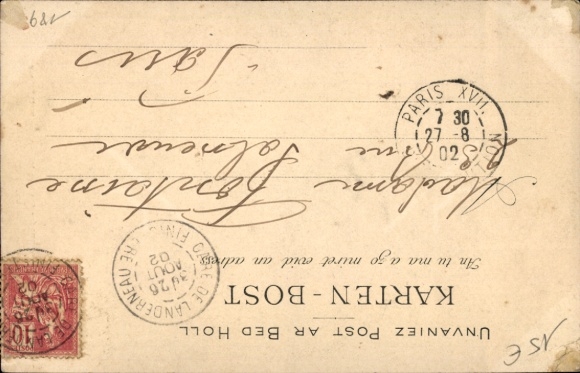 UNVANIEZ POST AR BED HOLL
KARTEN-BOST
An tu ma a zo miret evid an adress
Madame Fontaine
Rue
Paris
GARE DE LANDERNEAU FINISTERE
26
AOUT
02
PARIS XVII
7 30
27 - 8
02
10
15€
189